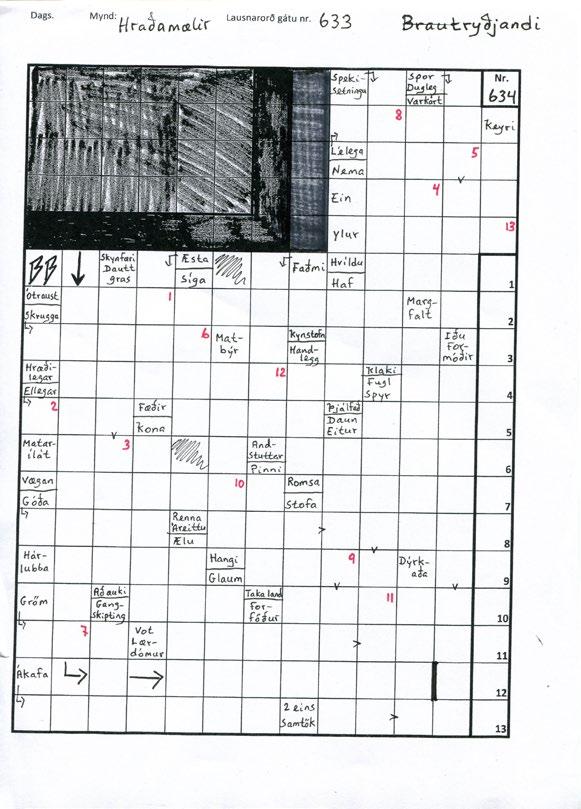 Dags. Mynd: Hraðamælir Lausnarorð gátu nr. 633 Brautryðjandi
Speki-
setninga
Spor
Dugleg
Varkárt
Nr.
634
8
Keyri
Lélega
Nema
5
Ein
4
Ylur
13
Skynfæri
Dautt
gras
Æsta
Síga
Faðmi
Hvíldu
Haf
1
Ótraust
Skrugga
1
Marg-
falt
2
6
Mat-
býr
Kynstofn
Hand-
legg
Iðu
For-
móðir
3
Hræði-
legar
Ellegar
12
Klaki
Fugl
Spyr
4
2
Fæðir
Kona
Þjálfað
Daun
Eitur
5
Matar-
ílát
3
And-
stuttar
Pinni
6
Vægan
Góða
10
Romsa
Stofa
7
Renna
Áreittu
Ælu
8
Hár-
lubba
Hangi
Glaum
9
Dýrk-
aða
9
Gröm
Aðauki
Gang-
skipting
Taka land
For-
föður
11
10
7
Vot
Lær-
dómur
11
Ákafa
12
2 eins
Samtök
13